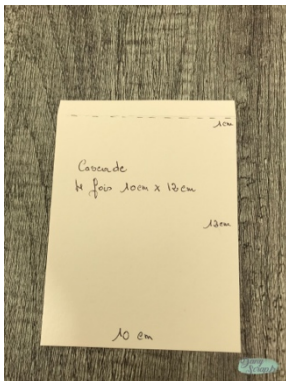 1cm
Cascade
4 fois 10cm x 12cm
12cm
10 cm